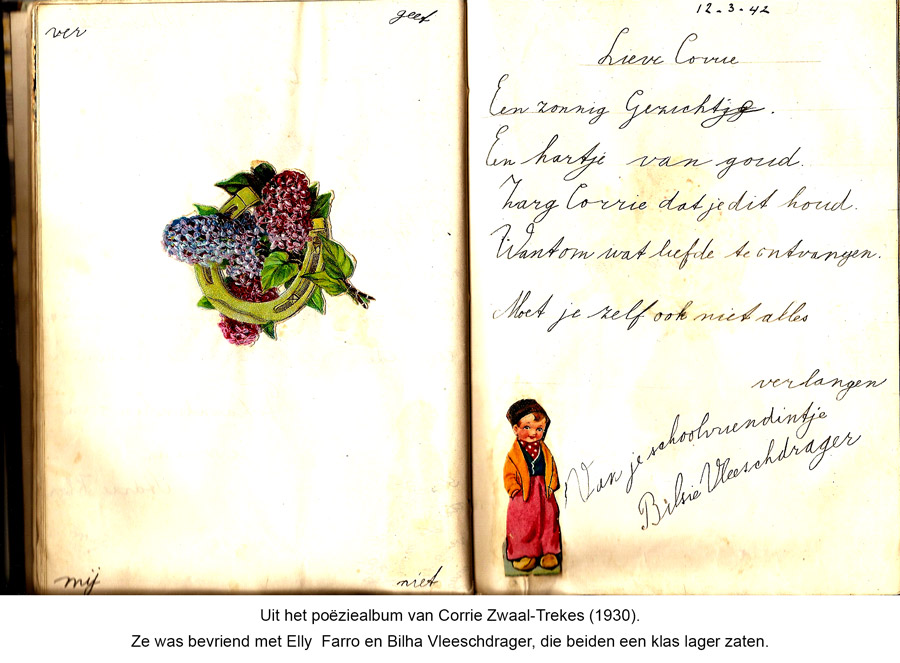 ver
geet
mij
niet
12-3-42
Lieve Corrie
Een zonnig Gezichtje.
En hartje van goud.
Zorg Corrie dat je dit houd.
Want om wat liefde te ontvangen.
Moet je zelf ook niet alles
verlangen
Van je schoolvriendintje
Bilsie Vleeschdrager
Uit het poëziealbum van Corrie Zwaal-Trekes (1930).
Ze was bevriend met Elly Farro en Bilha Vleeschdrager, die beiden een klas lager zaten.